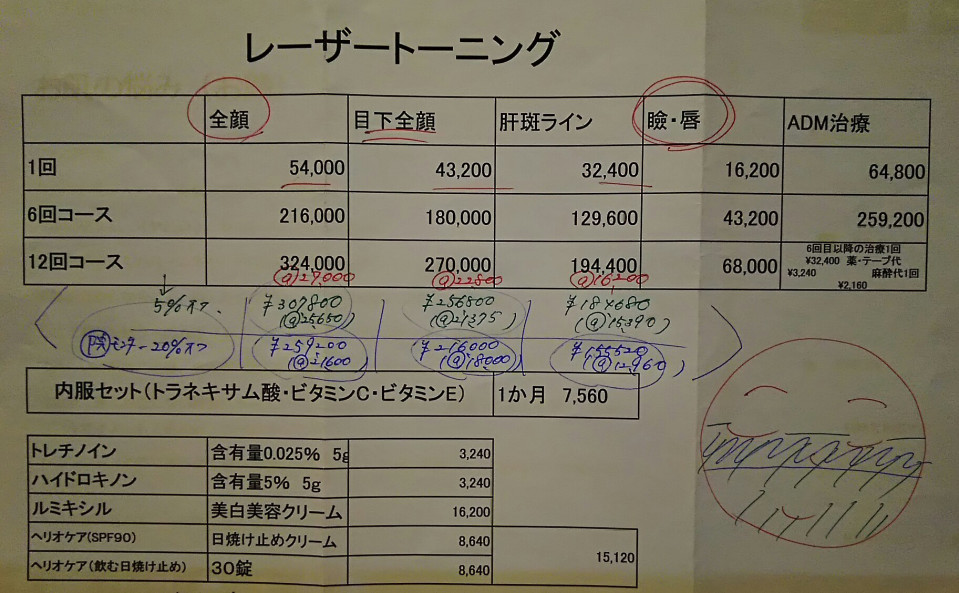 レーザートーニング
全顔 目下全顔 肝斑ライン 瞼・唇 ADM治療
1回 54,000 43,200 32,400 16,200 64,800
6回コース 216,000 180,000 129,600 43,200 259,200
12回コース 324,000 270,000 194,400 68,000 6回目以降の治療1回
¥32,400 薬・テープ代
¥3,240 麻酔代1回
¥2,160
@27,000 @22800 @16,200
5%オフ ¥307800 ¥256800 ¥184680
(@25650) (@21375) (@15390)
モニター20%オフ ¥259200 ¥216000 ¥155520
(@21600) (@18000) (@12960)
内服セット(トラネキサム酸・ビタミンC・ビタミンE) 1か月 7,560
トレチノイン 含有量0.025% 5g 3,240
ハイドロキノン 含有量5% 5g 3,240
ルミキシル 美白美容クリーム 16,200
ヘリオケア(SPF90) 日焼け止めクリーム 8,640
15,120
ヘリオケア(飲む日焼け止め) 30錠 8,640